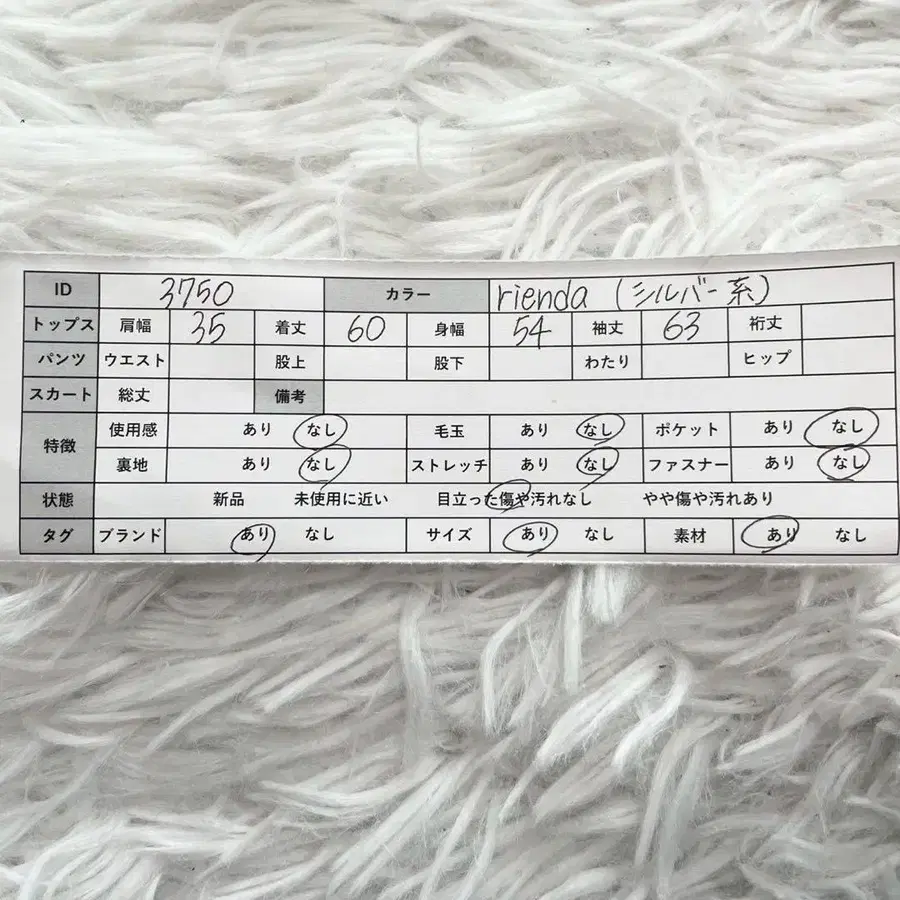 ID 3750 カラー rienda (シルバー系)
トップス 肩幅 35 着丈 60 身幅 54 袖丈 63 裄丈
パンツ ウエスト 股上 股下 わたり ヒップ
スカート 総丈 備考
特徴 使用感 あり なし 毛玉 あり なし ポケット あり なし
裏地 あり なし ストレッチ あり なし ファスナー あり なし
状態 新品 未使用に近い 目立った傷や汚れなし やや傷や汚れあり
タグ ブランド あり なし サイズ あり なし 素材 あり なし